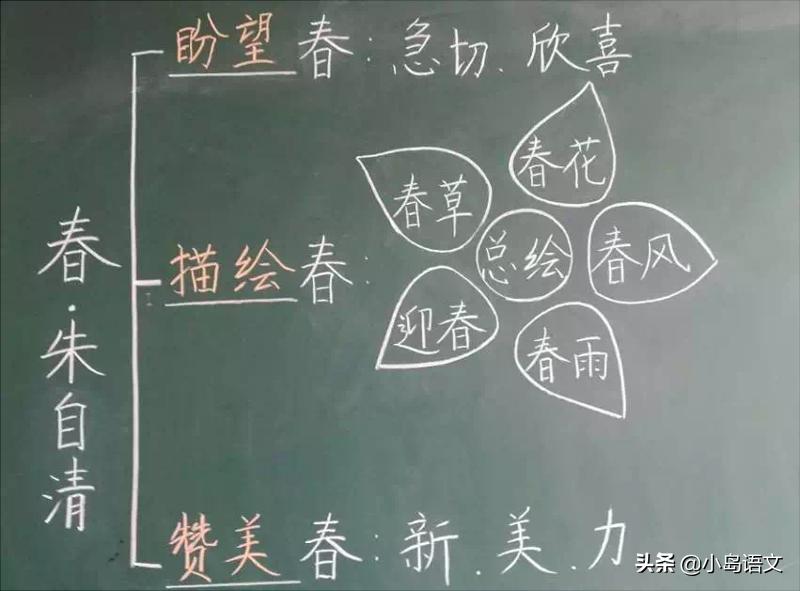 春·朱自清
盼望春：急切、欣喜
描绘春：
春草
春花
总绘
春风
迎春
春雨
赞美春：新.美.力
头条 @小岛语文